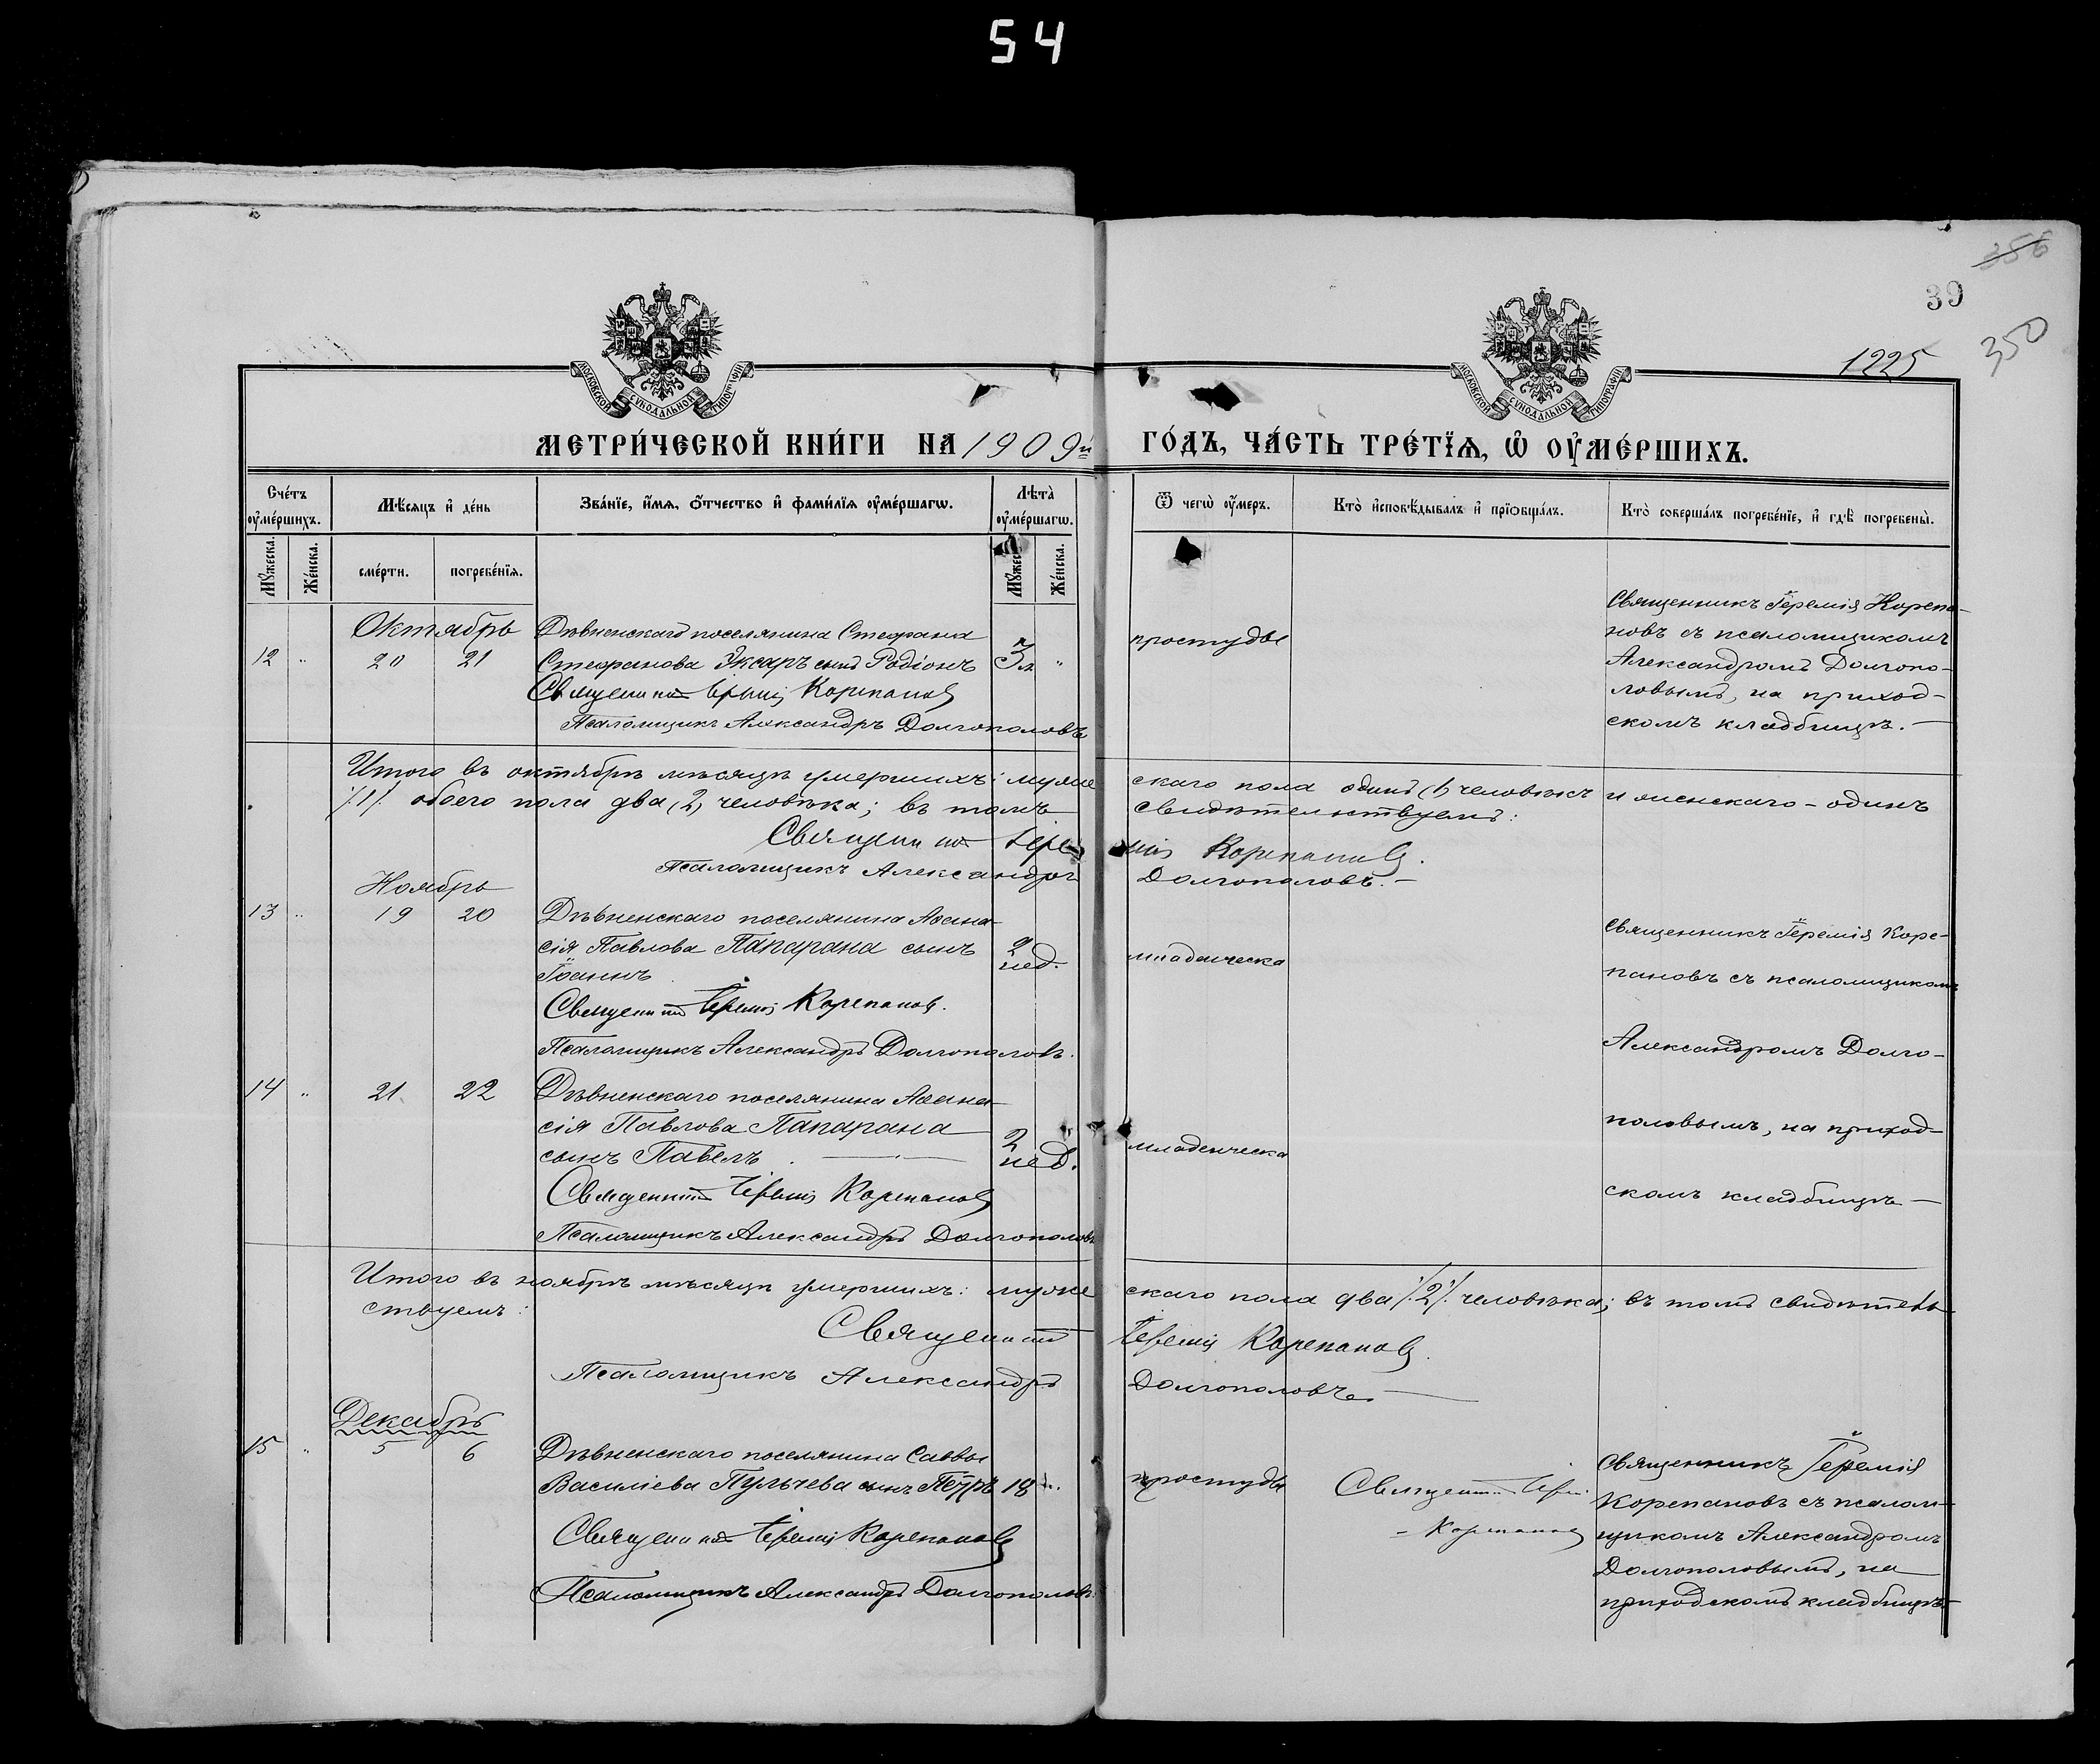 54
356
39
350
1225
МОСКОВСКОЙ СѴНОДАЛЬНОЙ ТИПОГРАФІИ
МОСКОВСКОЙ СѴНОДАЛЬНОЙ ТИПОГРАФІИ
МЕТРИ́ЧЕСКОЙ КНИ́ГИ НА 1909й ГО́ДЪ, ЧА́СТЬ ТРЕ́ТЇѦ, Ѡ҆ ОУ҆МЕ́РШИХЪ.
Сче́тъ оу҆ме́ршихъ.
Мѣ́сяцъ и҆ де́нь
Зва́нїе, и҆́мя, ѻ҆́тчество и҆ фами́лїя оу҆ме́ршагѡ.
Лѣта̀ оу҆ме́ршагѡ.
Ѿ чегѡ̀ оу҆́меръ.
Кто̀ и҆сповѣ́дывалъ и҆ прїѻбща́лъ.
Кто̀ соверша́лъ погребе́нїе, и҆ гдѣ̀ погребены̀.
Мꙋ́жеска.
Же́нска.
сме́рти.
погребе́нїя.
Мꙋ́жеска.
Же́нска.
Октябрь
12 " 20 21
Дѣвненскаго поселянина Стефана
Стефанова Эксаръ сынъ Родіонъ 3 л. "
Священникъ Іеремія Корепановъ
Псаломщикъ Александръ Долгополовъ
простуды
Священникъ Іеремія Корепа-
новъ съ псаломщикомъ
Александромъ Долгопо-
ловымъ, на приход-
скомъ кладбищѣ. —
Итого въ октябрѣ мѣсяцѣ умершихъ: мужескаго пола одинъ (1) человѣкъ и женскаго - одинъ
/.1/. обоего пола два (2) человѣка; въ томъ свидѣтельствуемъ:
Священникъ Іеремія Корепановъ.
Псаломщикъ Александръ Долгополовъ. —
Ноябрь
13 " 19 20
Дѣвненскаго поселянина Аѳана-
сія Павлова Папарана сынъ
Іоаннъ
2 нед.
Священникъ Іеремія Корепановъ.
Псаломщикъ Александръ Долгополовъ.
младенческа
Священникъ Іеремія Коре-
пановъ съ псаломщикомъ
Александромъ Долго-
половымъ, на приход-
скомъ кладбищѣ —
14 " 21 22
Дѣвненскаго поселянина Аѳана-
сія Павлова Папарана
сынъ Павелъ. —
2 нед.
Священникъ Іеремія Корепановъ
Псаломщикъ Александръ Долгополовъ
младенческа
Итого въ ноябрѣ мѣсяцѣ умершихъ: мужескаго пола два /.2/. человѣка; въ томъ свидѣтель-
ствуемъ:
Священникъ Іеремія Корепановъ.
Псаломщикъ Александръ Долгополовъ. —
Декабрь
15 " 5 6
Дѣвненскаго поселянина Саввы
Василіева Пульчева сынъ Петръ 18 "
Священникъ Іеремія Корепановъ
Псаломщикъ Александръ Долгополовъ.
простуды
Священникъ Іерем.
- Корепановъ
Священникъ Іеремія
Корепановъ съ псалом-
щикомъ Александромъ
Долгополовымъ, на
приходскомъ кладбищѣ. —